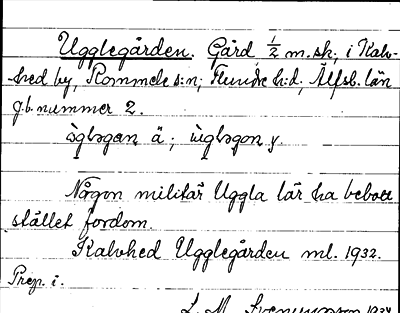 Ugglegården. Gård 1/2 m.sk; i Kalv-
hed by, Rommele s:n; Flundre h:d, Älfsb. län
j.b. nummer 2.
ùglǝgan ä; ùglǝgon y.
Någon militär Uggla lär ha bebott
stället fordom.
Kalvhed Ugglegården ml. 1932.
Prep. i.
L. M. Svenungsson 1934